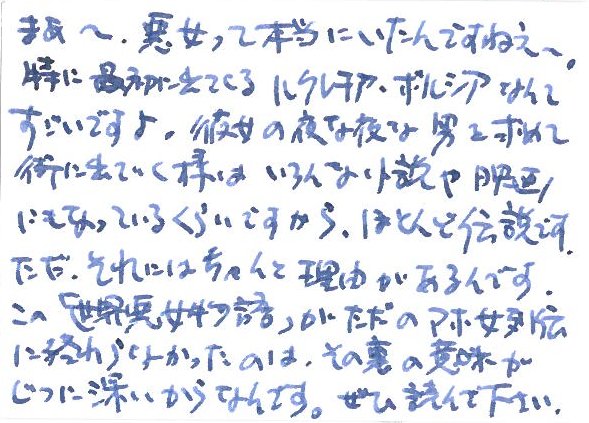 まあ〜、悪女って本当にいたんですねえ〜。
特に最初に出てくるルクレチア・ボルジアなんて
すごいですよ。彼女の夜な夜な男を求めて
街に出ていく様はいろんな小説や映画
にもなっているくらいですから、ほとんど伝説です。
ただ、それにはちゃんと理由があるんです。
この「世界悪女物語」がただのアホ女列伝
に終わらなかったのは、その裏の意味が
じつに深いからなんです。ぜひ読んで下さい。